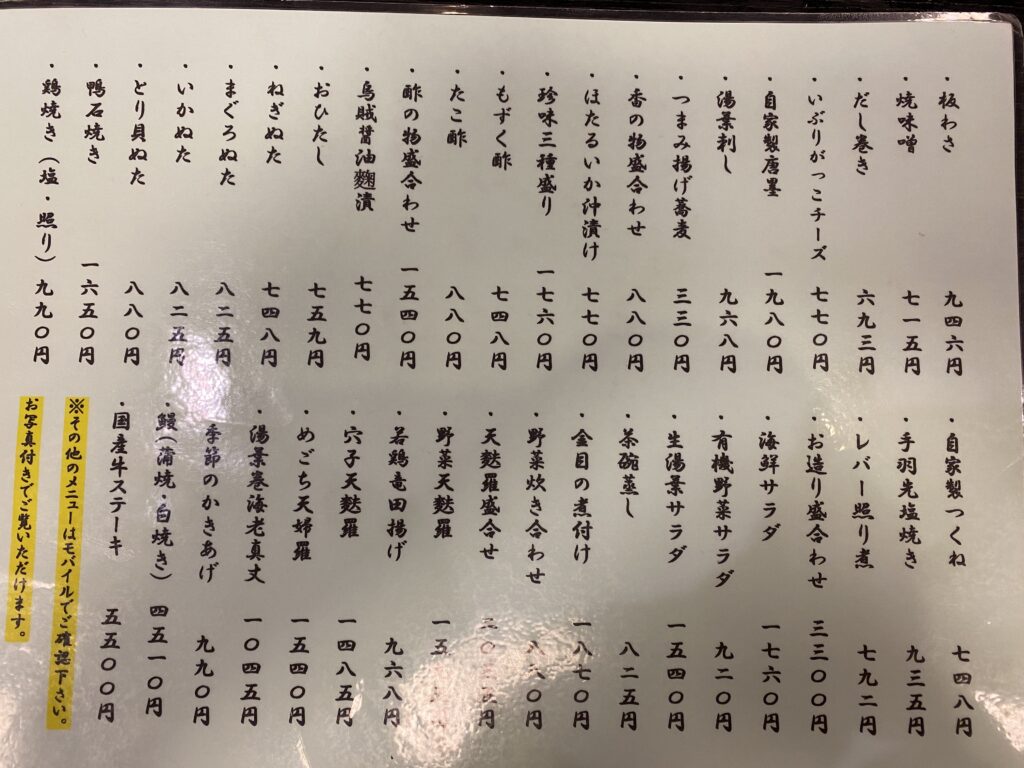 ・板わさ 九四六円
・焼味噌 七一五円
・だし巻き 六九三円
・いぶりがっこチーズ 七七〇円
・自家製唐墨 一九八〇円
・湯景刺し 九六八円
・つまみ揚げ蕎麦 三三〇円
・香の物盛合わせ 八八〇円
・ほたるいか沖漬け 七七〇円
・珍味三種盛り 一七六〇円
・もずく酢 七四八円
・たこ酢 八八〇円
・酢の物盛合わせ 一五四〇円
・烏賊醤油麴漬 七七〇円
・おひたし 七五九円
・ねぎぬた 七四八円
・まぐろぬた 八二五円
・いかぬた 八二五円
・とり貝ぬた 八八〇円
・鴨石焼き 一六五〇円
・鶏焼き（塩・照り） 九九〇円
・自家製つくね 七四八円
・手羽先塩焼き 九三五円
・レバー照り煮 七九二円
・お造り盛合わせ 三三〇〇円
・海鮮サラダ 一七六〇円
・有機野菜サラダ 九二〇円
・生湯景サラダ 一五四〇円
・茶碗蒸し 八二五円
・金目の煮付け 一八七〇円
・野菜炊き合わせ 八八〇円
・天麩羅盛合せ
・野菜天麩羅
・若鶏竜田揚げ 九六八円
・穴子天麩羅 一四八五円
・めごち天婦羅 一五四〇円
・湯景巻海老真丈 一〇四五円
・季節のかきあげ 九九〇円
・鰻（蒲焼・白焼き） 四五一〇円
・国産牛ステーキ 五五〇〇円
※その他のメニューはモバイルでご確認下さい。
お写真付きでご覧いただけます。